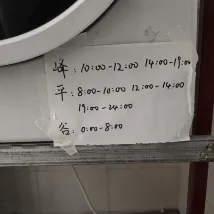 峰：10:00-12:00 14:00-19:00
平：8:00-10:00 12:00-14:00
19:00-24:00
谷：0:00-8:00